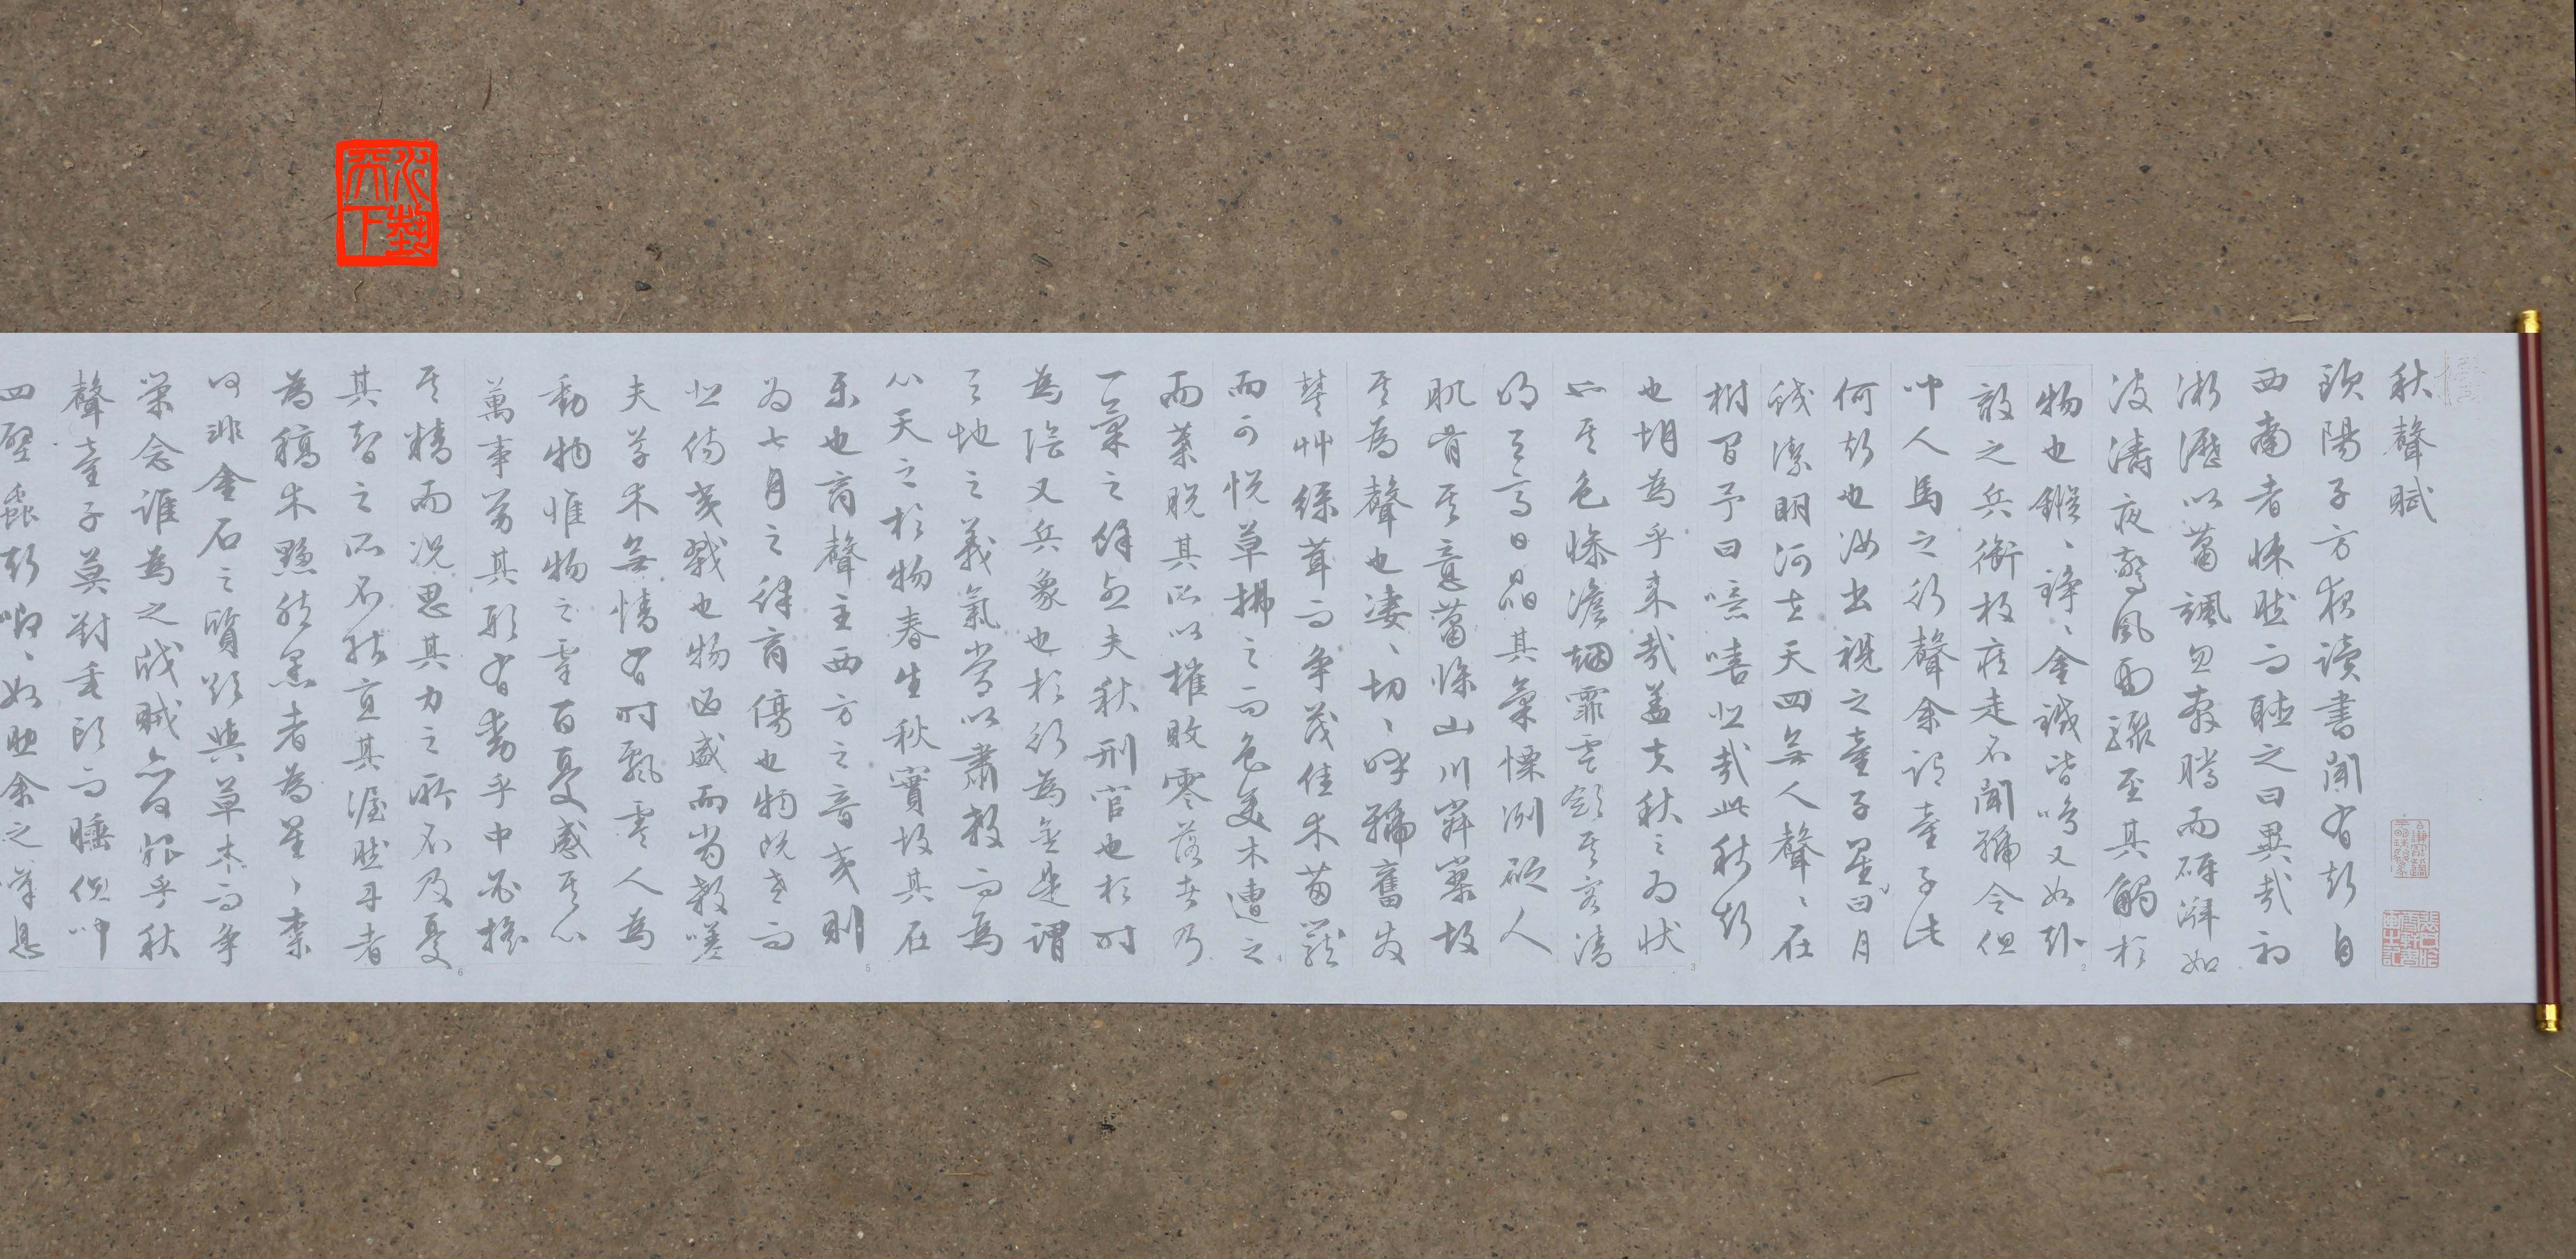 秋聲賦
歐陽子方夜讀書聞有聲自
西南者悚然而聽之曰異哉初
淅瀝以蕭颯忽奔騰而砰湃如
波濤夜驚風雨驟至其觸於
物也鏦〻錚〻金鐵皆鳴又如赴
敵之兵銜枚疾走不聞號令但
聞人馬之行聲余謂童子此
何聲也汝出視之童子曰星月
皎潔明河在天四無人聲〻在
樹間予曰噫嘻悲哉此秋聲
也胡為乎來哉蓋夫秋之為狀
也其色慘澹烟霏雲斂其容清
明天高日晶其氣慄洌砭人
肌骨其意蕭條山川寂寥故
其為聲也淒〻切〻呼號奮發
豐草綠茸而爭茂佳木葱蘢
而可悅草拂之而色變木遭之
而葉脫其所以摧敗零落者乃
一氣之餘烈夫秋刑官也於時
為陰又兵象也於行為金是謂
天地之義氣常以肅殺而為
心天之於物春生秋實故其在
樂也商聲主西方之音夷則
為七月之律商傷也物既老而
悲傷夷戮也物過盛而當殺嗟
夫草木無情有時飄零人為
動物惟物之靈百憂感其心
萬事勞其形有動乎中必搖
其精而況思其力之所不及憂
其智之所不能宜其渥然丹者
為槁木黟然黑者為星〻柰
何非金石之質欲與草木而爭
榮念誰為之戕賊亦何恨乎秋
聲童子莫對垂頭而睡但聞
四壁蟲聲唧〻如助余之嘆息
天下
2
3
4
5
6